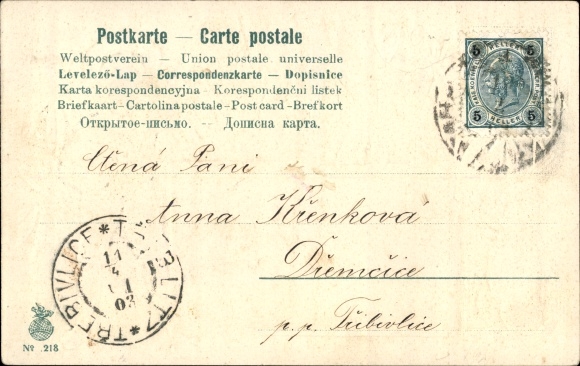 Postkarte — Carte postale
Weltpostverein — Union postale universelle
Levelező-Lap — Correspondenzkarte — Dopisnice
Karta korespondencyjna — Korespondenčni listek
Briefkaart - Cartolina postale - Post card - Brefkort
Открытое-письмо. — Дописна карта.
5 HELLER 5
5 HELLER 5
Ctěná Paní
Anna Křenková
Dřemčice
p. p. Třibivlice
TŘEBIVLICE * TRIBLITZ *
11
4
03
No. 218